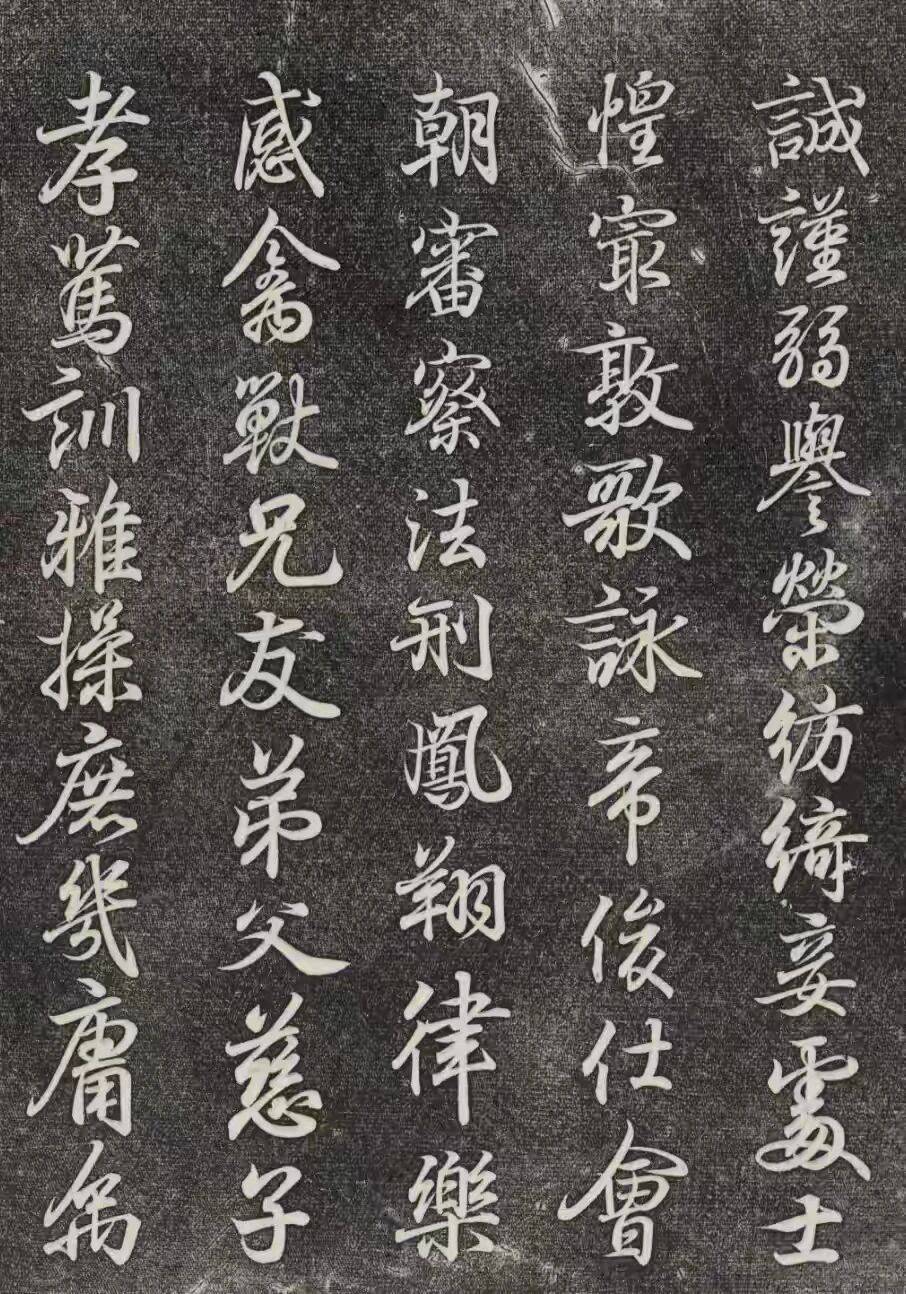 誠謹弱譽榮紡綺妾處士
惶㝡敦歌詠帝俊仕會
朝審察法刑鳳翔律樂
感禽獸兄友弟父慈子
孝篤訓雅操庶幾庸